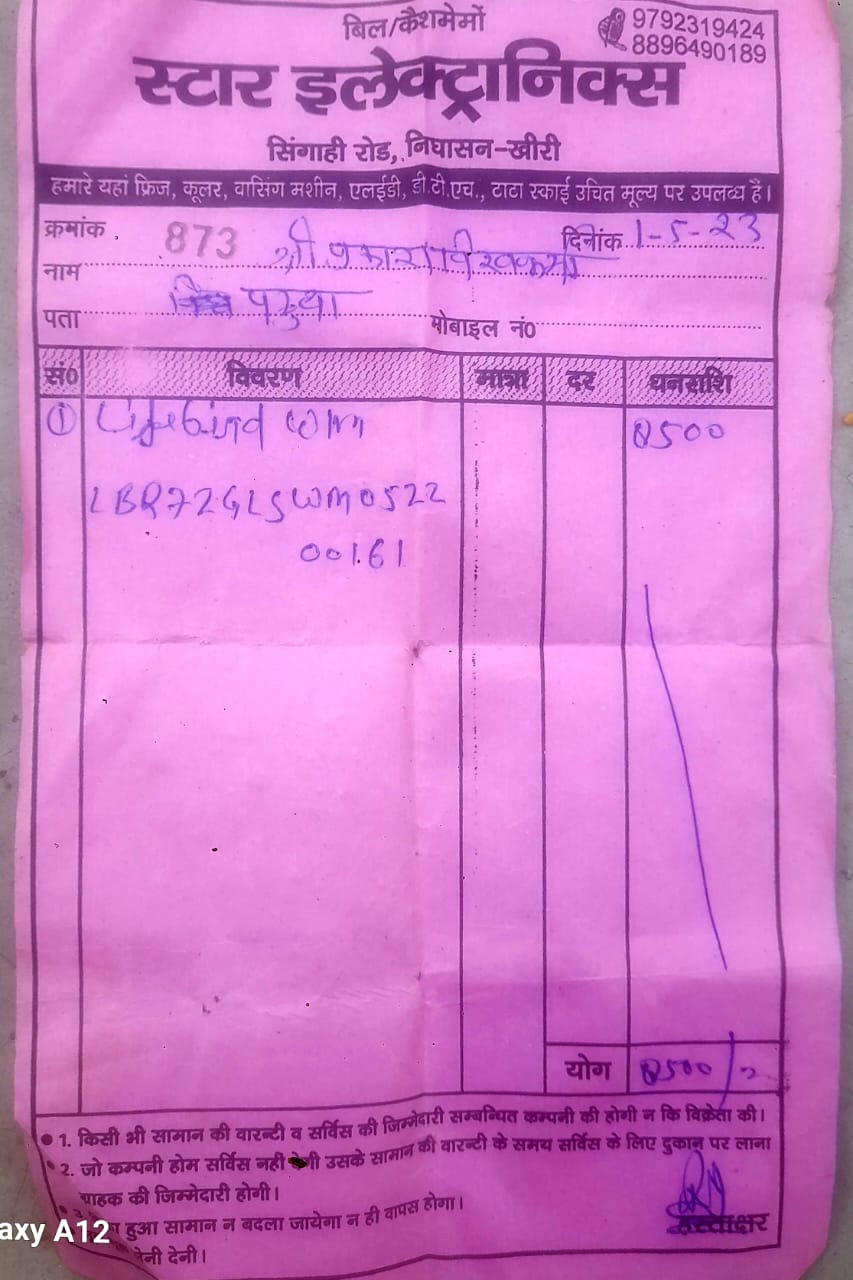 बिल/कैशमेमों
9792319424
8896490189
स्टार इलेक्ट्रानिक्स
सिंगाही रोड, निघासन-खीरी
हमारे यहां फ्रिज, कूलर, वासिंग मशीन, एलईडी, डी.टी.एच., टाटा स्काई उचित मूल्य पर उपलब्ध हैं।
क्रमांक 873 दिनांक 1-5-23
नाम श्री प्रकाश
पता पढुया मोबाइल नं0
सं0 विवरण मात्रा दर धनराशि
①
LBR72GLSWM0522
00161
योग
1. किसी भी सामान की वारन्टी व सर्विस की जिम्मेदारी सम्बन्धित कम्पनी की होगी न कि विक्रेता की।
2. जो कम्पनी होम सर्विस नही उसके सामान की वारन्टी के समय सर्विस के लिए दुकान पर लाना
ग्राहक की जिम्मेदारी होगी।
हुआ सामान न बदला जायेगा न ही वापस होगा।
देनी।
हस्ताक्षर
axy A12